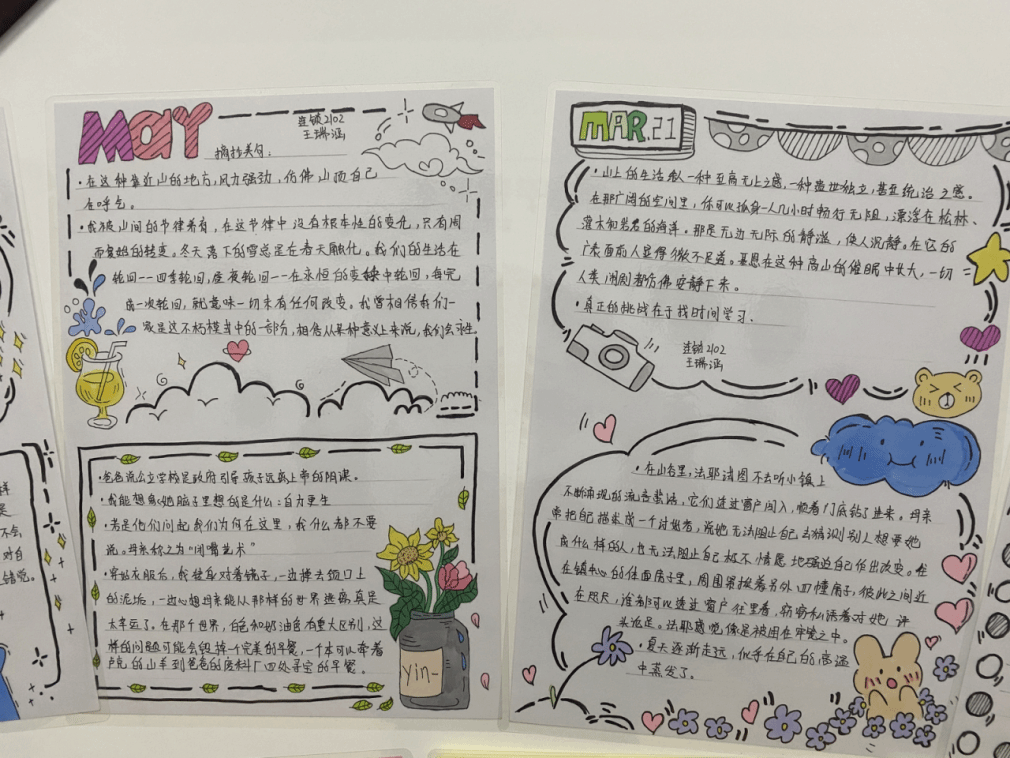 May
连锁2102
王琳涵
摘抄美句:
·在这种靠近山的地方,风力强劲,仿佛山顶自己
在呼气。
·我被山间的节律养育,在这节律中没有根本性的变化,只有周
而复始的转变。冬天落下的雪总是在春天融化。我们的生活在
轮回——四季轮回,昼夜轮回——在永恒的变换中轮回,每完
成一次轮回,就意味一切未有任何改变。我曾相信我们一
家是这不朽模式中的一部分,相信从某种意义上来说,我们会永生
·爸爸说公立学校是政府引导孩子远离上帝的阴谋。
·我能想象她脑子里想的是什么:自力更生
·若是他们问起我们为何在这里,我什么都不要
说。母亲称之为“闭嘴艺术”
·穿好衣服后,我独自对着镜子,一边擦去领口上
的泥垢,一边心想母亲能从那样的世界逃离真是
太幸运了。在那个世界,白色和奶油色有重大区别,这
样的问题可能会毁掉一个完美的早餐,一个本可以牵着
卢克的山羊到爸爸的废料厂四处寻宝的早餐。
Yin-
MAR.21
·山上的生活教人一种至高无上之感,一种遗世独立,甚至统治之感。
在那广阔的空间里,你可以独自一人几小时畅行无阻,漂浮在松林、
灌木和岩石的海洋。那是无边无际的静谧,使人沉静。在它的
广袤面前人显得微不足道。基恩在这种高山的催眠中长大,一切
人类闹剧都仿佛安静下来。
·真正的挑战在于找时间学习、
连锁2102
王琳涵
·在山谷里,法耶试图不去听小镇上
不断涌现的流言蜚语,它们透过窗户闯入,顺着门底钻了进来。母亲
常把自己描述成一个讨好者,说她无法阻止自己去猜测别人想要她
成什么样的人,也无法阻止自己极不情愿地强迫自己作出改变。住
在镇中心的体面房子里,周围紧挨着另外四幢房子,彼此之间近
在咫尺,谁都可以透过窗户往里看,窃窃私语着对她评
头论足。法耶感觉像是被困在牢笼之中。
·夏天逐渐走远,似乎在自己的高温
中蒸发了。
不会,
对自
错觉。